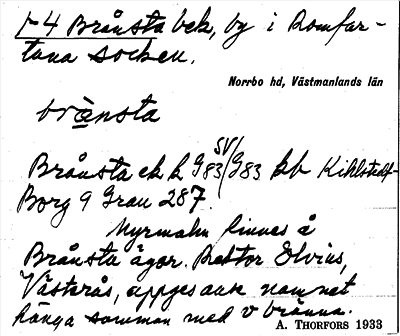 1-4 Brånsta bek, by i Romfar-
tuna socken.
Norrbo hd, Västmanlands län
brå̀nsta
Brånsta ek k G83 SV/G83 bb Kihlstedt-
Borg 9 Grau 287.
Myrmalm finnes å
Brånsta ägor. Rektor Elvius,
Västerås, uppges anse namnet
hänga samman med v bränna.
A. THORFORS 1933